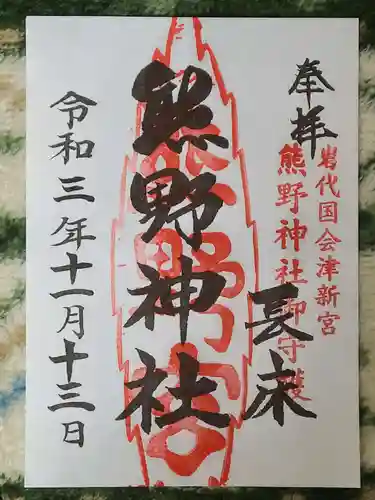 奉拝
岩代国会津新宮
熊野神社御守護
長床
熊野神社
熊野宮
令和三年十一月十三日